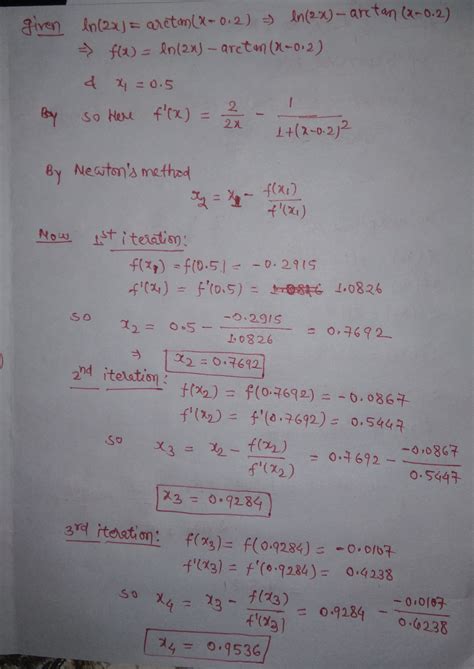 given ln(2x) = arctan(x-0.2) ⇒ ln(2x) - arctan(x-0.2)
⇒ f(x) = ln(2x) - arctan(x-0.2)
& x₁ = 0.5
By so Here f'(x) = 2/2x - 1/(1+(x-0.2)²)
By Newton's method
x₂ = x₁ - f(x₁)/f'(x₁)
Now 1st iteration:
f(x₁) = f(0.5) = -0.2915
f'(x₁) = f'(0.5) = 1.0826
so x₂ = 0.5 - (-0.2915)/1.0826 = 0.7692
⇒ x₂ = 0.7692
2nd iteration:
f(x₂) = f(0.7692) = -0.0867
f'(x₂) = f'(0.7692) = 0.5447
so x₃ = x₂ - f(x₂)/f'(x₂) = 0.7692 - (-0.0867)/0.5447
x₃ = 0.9284
3rd iteration:
f(x₃) = f(0.9284) = -0.0107
f'(x₃) = f'(0.9284) = 0.4238
so x₄ = x₃ - f(x₃)/f'(x₃) = 0.9284 - (-0.0107)/0.4238
x₄ = 0.9536